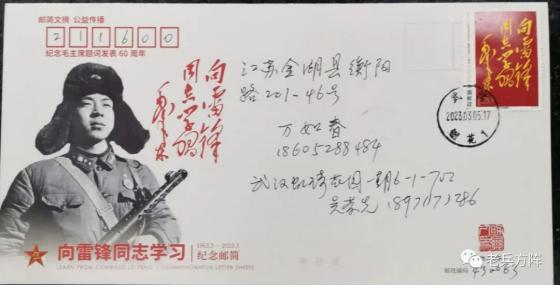 邮简文摘 公益传播
211600
纪念毛主席题词发表60周年
向雷锋
同志学习
毛泽东
向雷锋
同志学习
毛泽东
中国邮政
江苏金湖县衡阳
路201-46号
万如香
18605288484
2023.03.05.17
1
武汉虹琦花园一期6-1-702
吴荣先
向雷锋同志学习
1963.3—2023.3
纪念邮简
LEARN FROM COMRADE LEI FENG
COMMEMORATIVE LETTER SHEETS
邮政编码
老兵方阵